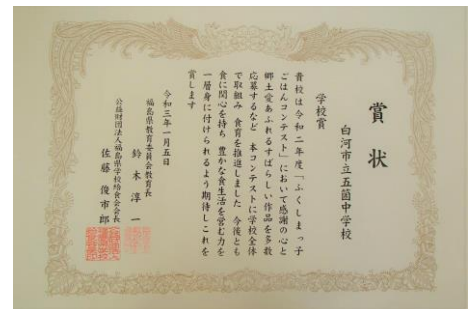 賞状
白河市立五箇中学校
学校賞
貴校は令和二年度「ふくしまっ子
ごはんコンテスト」において感謝の心と
郷土愛あふれるすばらしい作品を多数
応募するなど 本コンテストに学校全体
で取組み 食育を推進しました 今後とも
食に関心を持ち 豊かな食生活を営む力を
一層身に付けられるよう期待しこれを
賞します
令和三年一月五日
福島県教育委員会教育長
鈴木淳一
公益財団法人福島県学校給食会会長
佐藤俊市郎